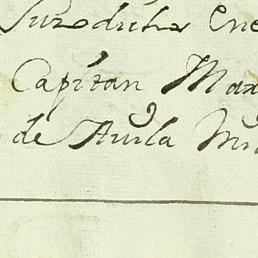 Suzodicha Ene
Capitan Max
de Avila Mu